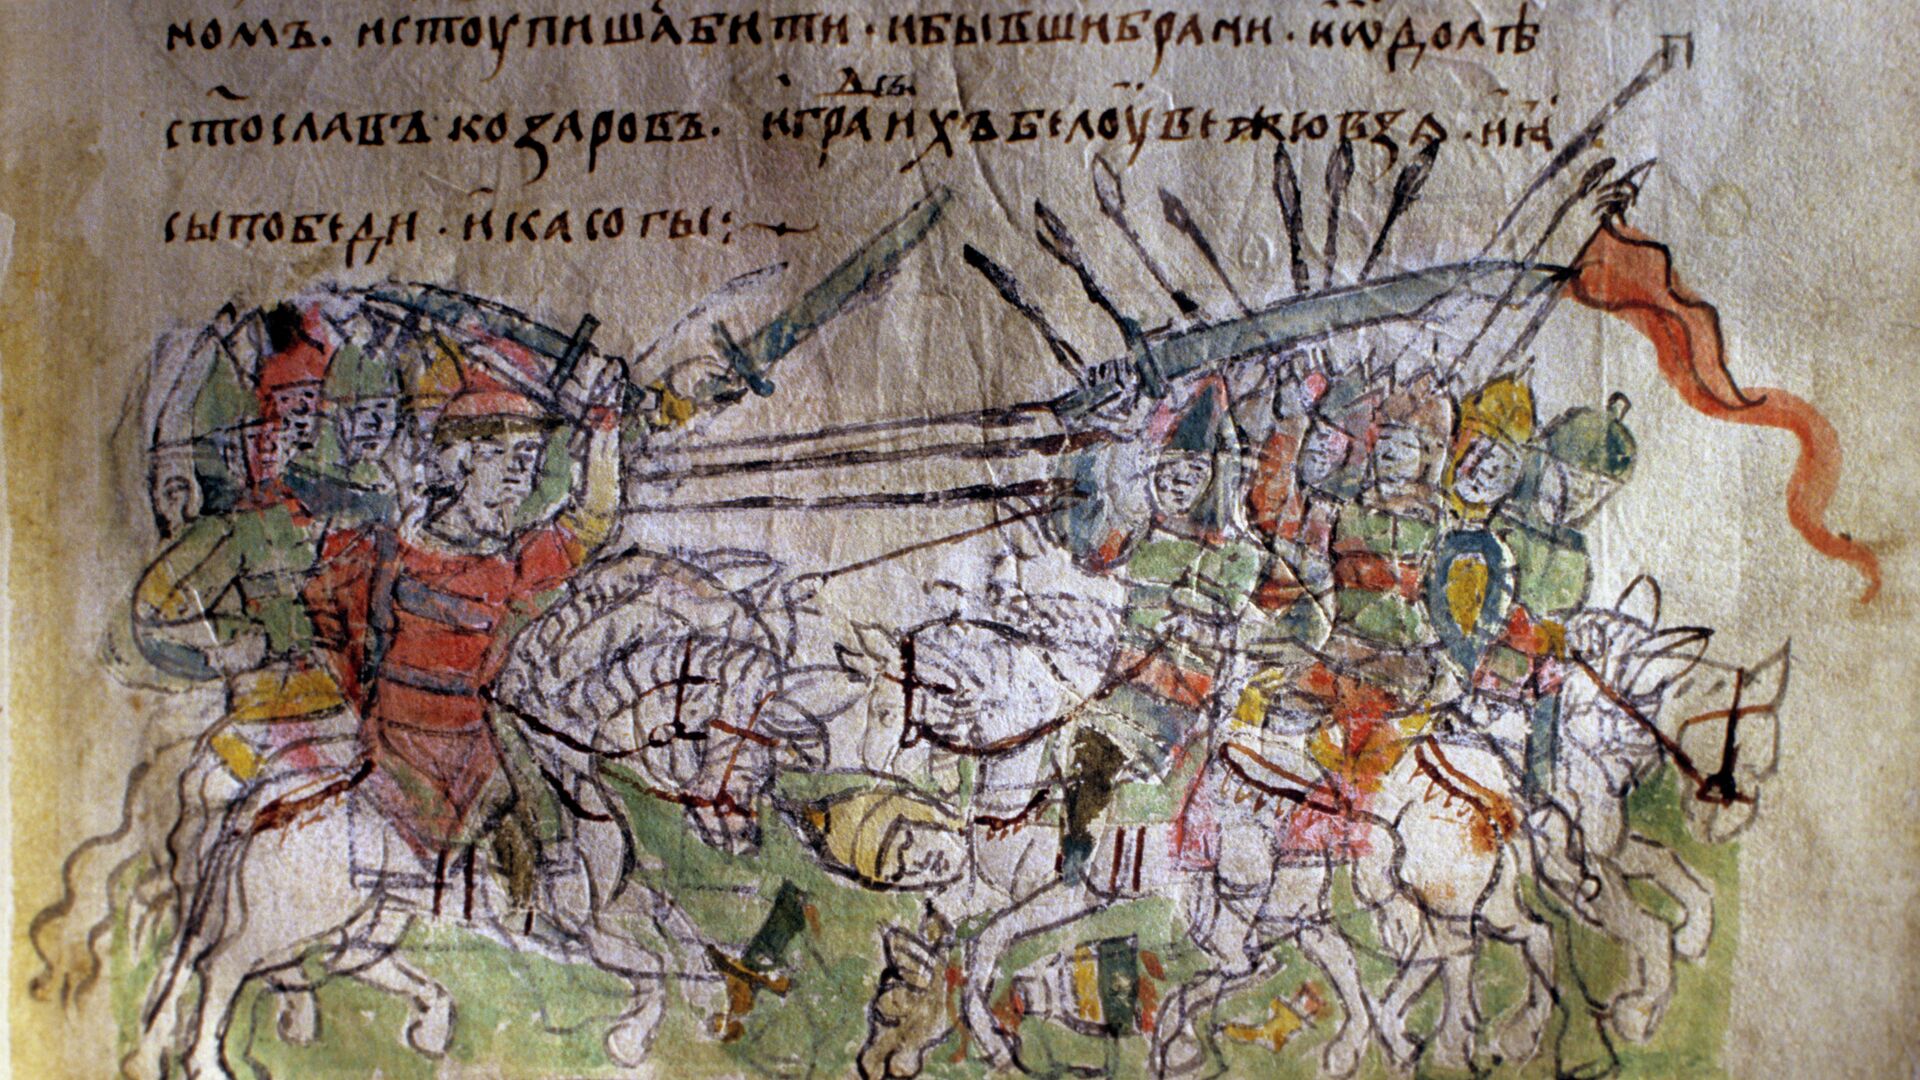 номъ. истоупиша бити · и бывши брани · и ѿдолѣ
ст҃ославъ козаровъ. и градъ ихъ белоу вежю взѧ · и ꙗ
сы победи · и касогы :~